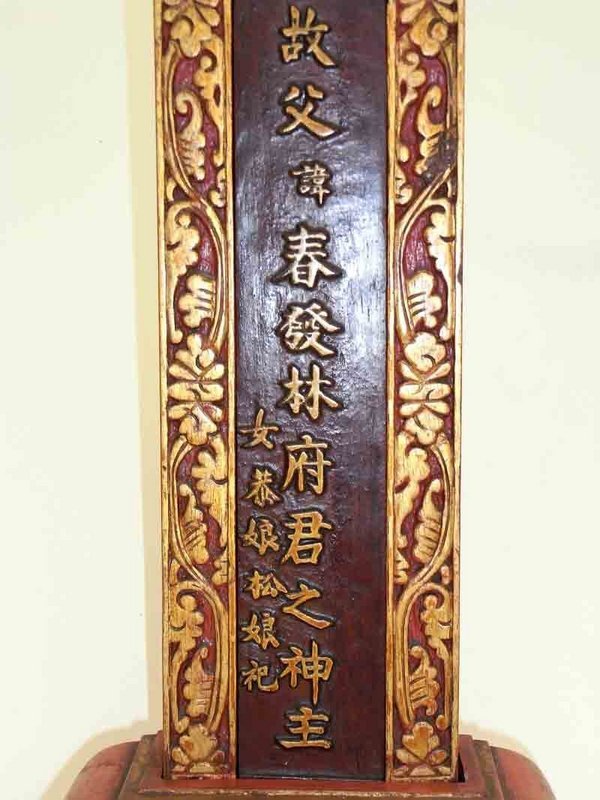 故父諱春發林府君之神主
女恭娘松娘祀